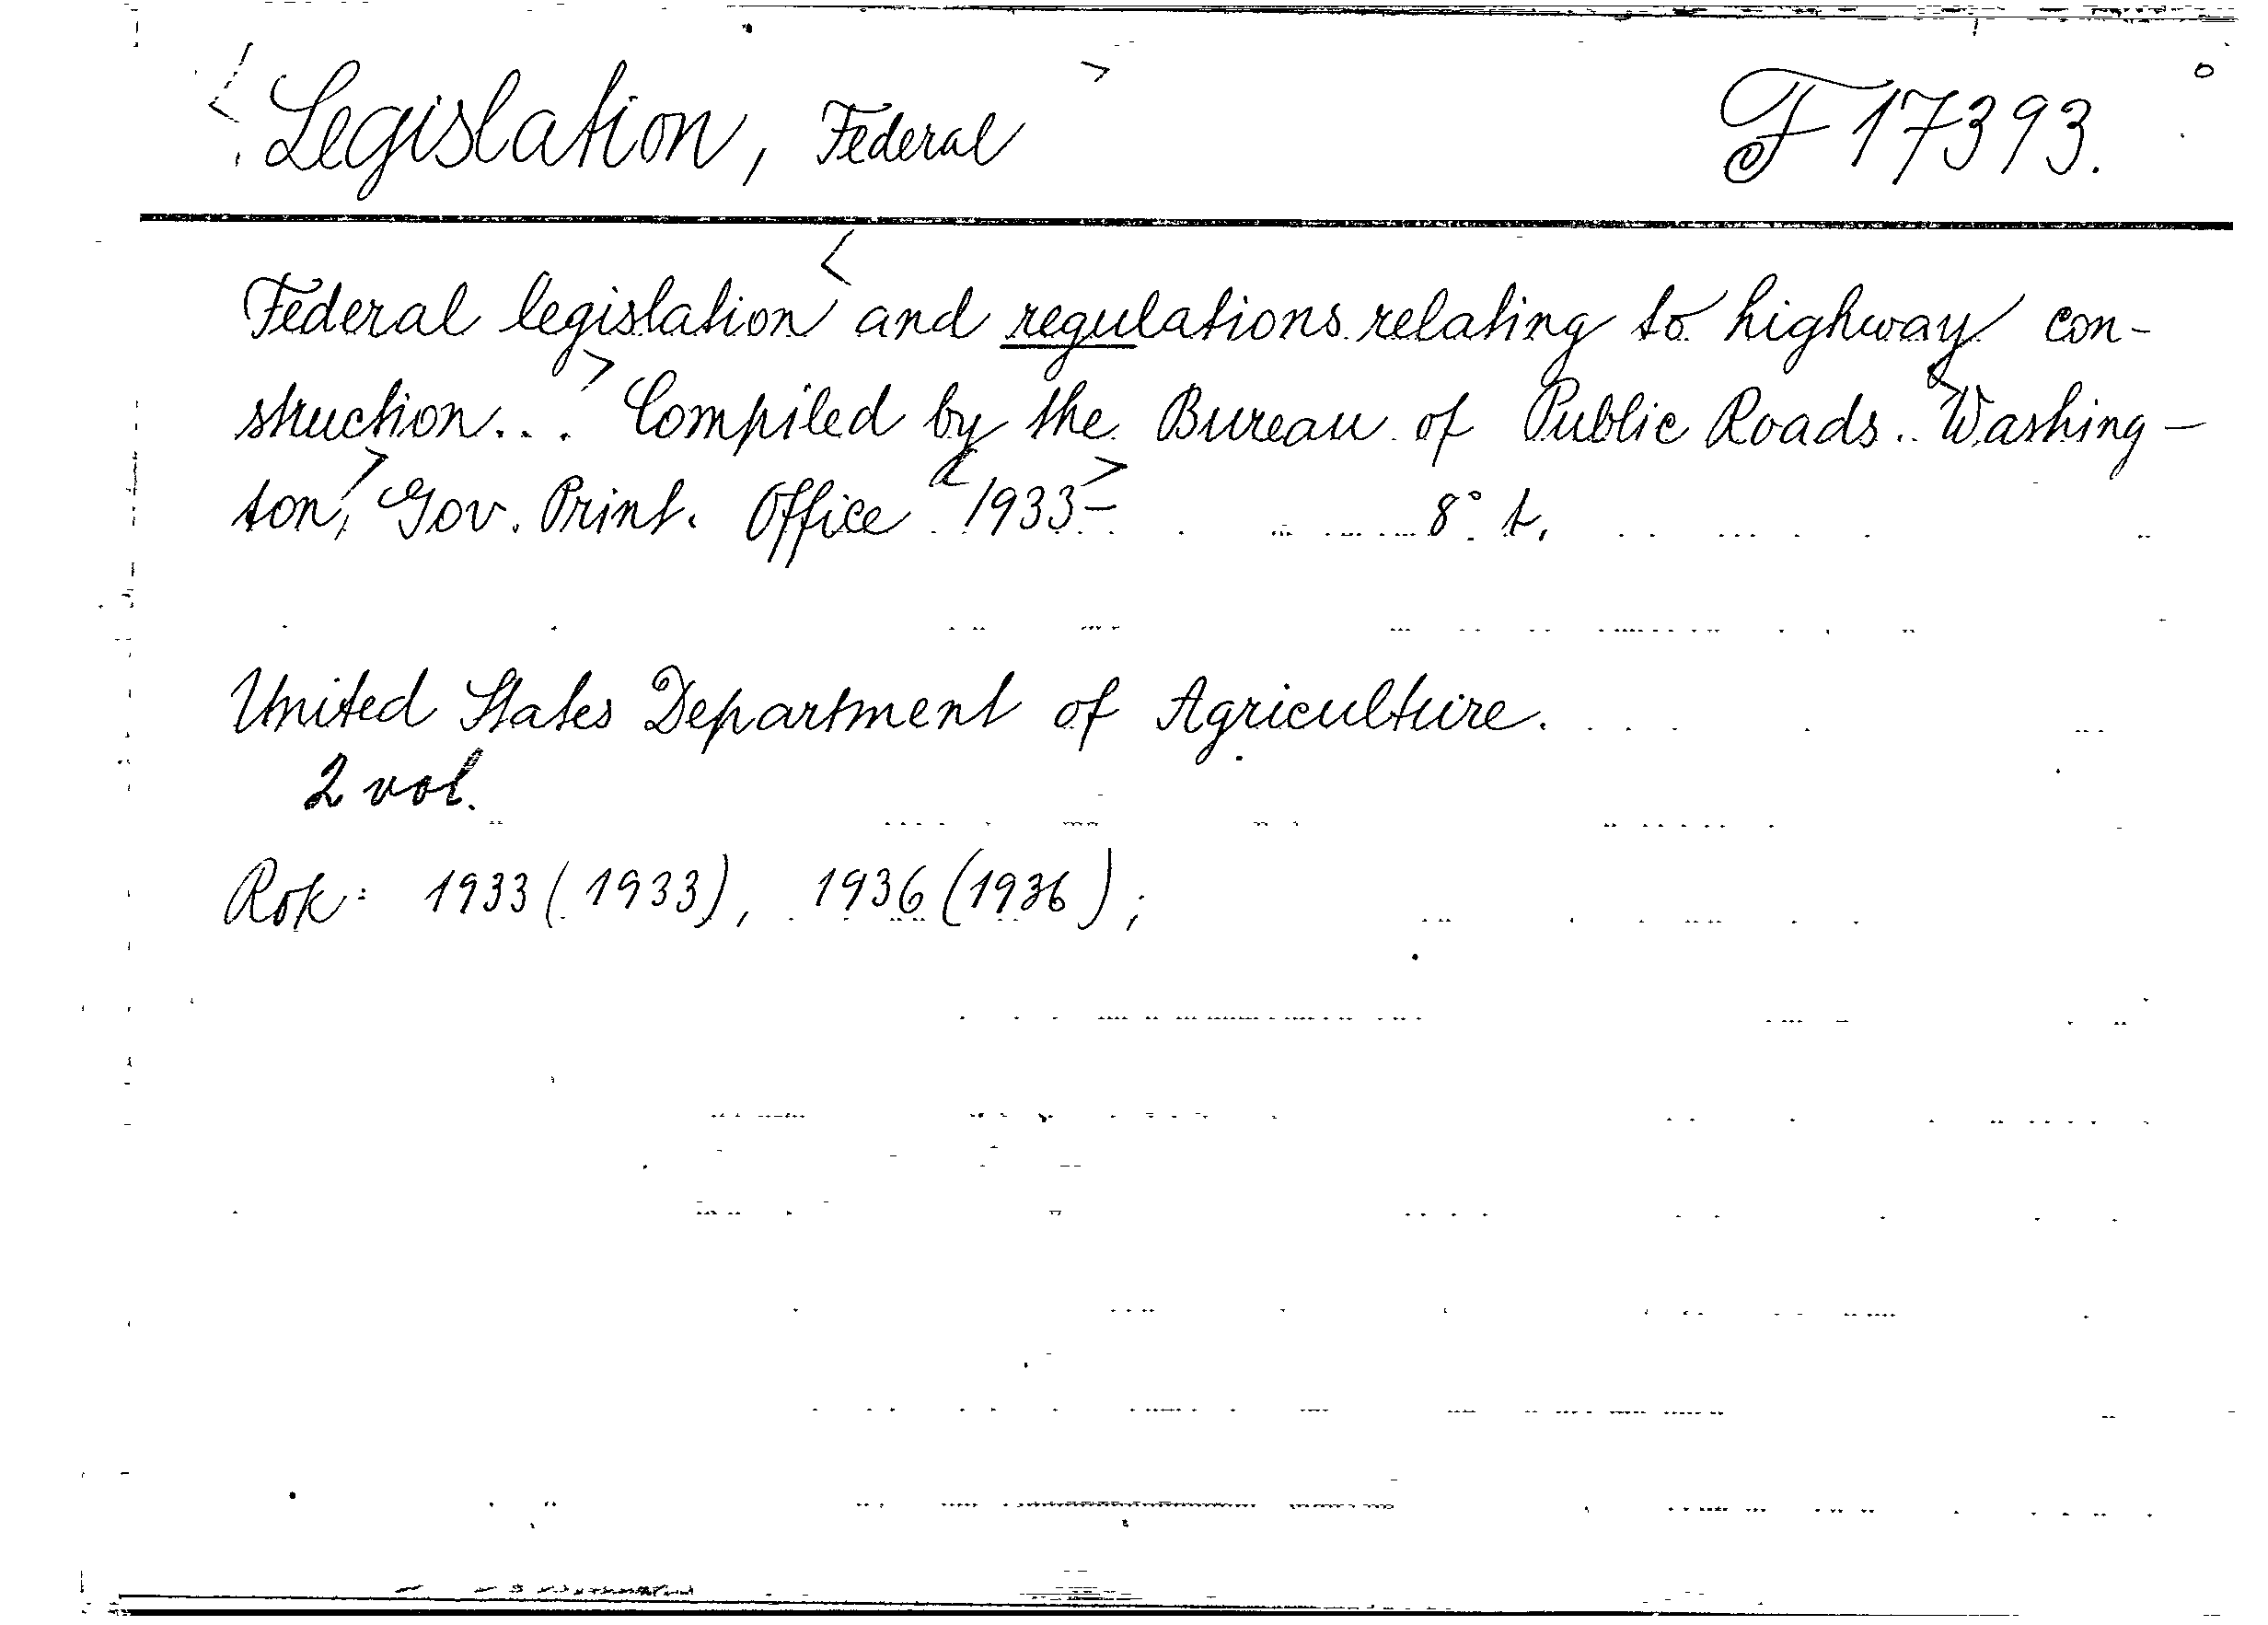 < Legislation, Federal >
F 17393.
Federal legislation < and regulations relating to highway con-
struction... > Compiled by the Bureau of Public Roads. < Washing-
ton, > Gov. Print. Office < 1933- > 8° t.
United States Department of Agriculture.
2 vol.
Rok: 1933 (1933), 1936 (1936);